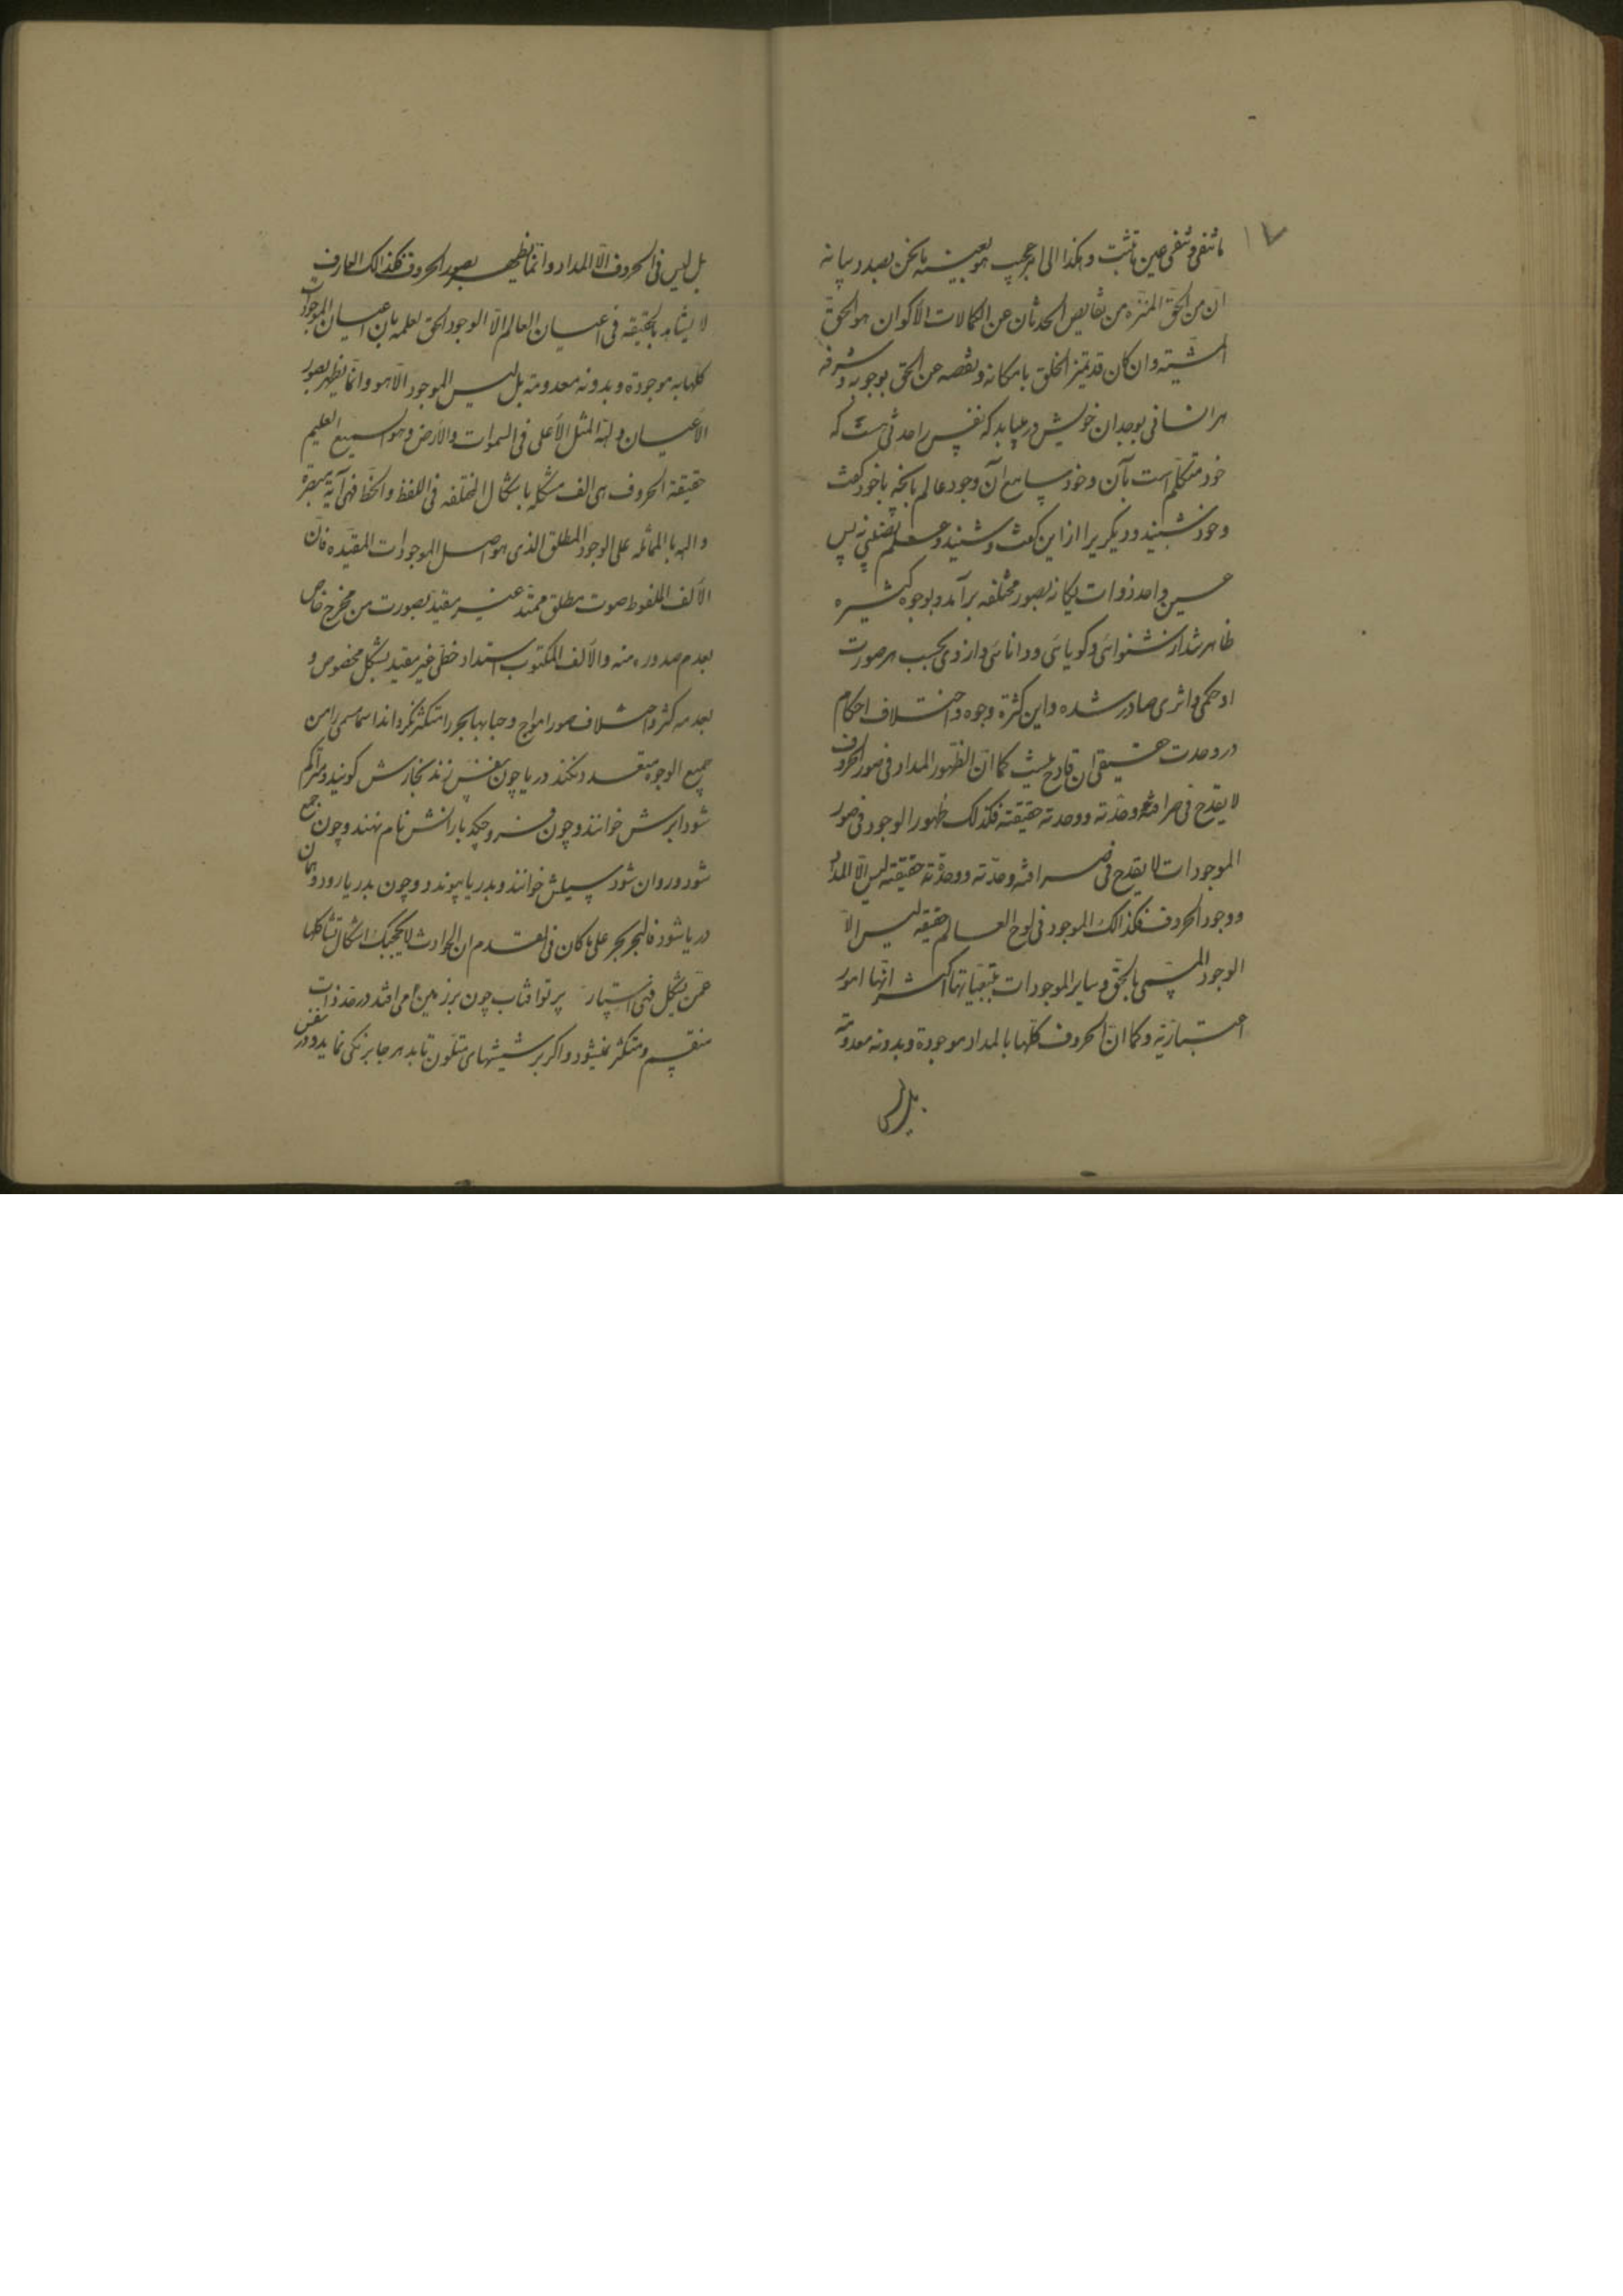 ۱۷
ما تنفی و تنفی عین ما تثبت و هکذا الی امر عجیب هو بعینه ما نحن بصدد بیانه
ان من الحق المنزه من نقایص الحدثان عن الکمالات الاکوان هو الحق
المشبه وان کان قد تمیز الخلق بامکانه ونقصه عن الحق بوجوبه وشرفه
هر انسانی بوجدان خویش در میابد که نفس را حدثی هست که
خود متکلم است بآن و خود سامع آن وجود عالم بانچه باخود گفت
وخود شنید و دیگریرا از این گفت و شنید وعلم نصیبی نه پس
عین واحد و ذات یکانه بصور مختلفه برآمد و بوجوه کثیره
ظاهر شد از شنوائی وکویائی و دانائی واز وی بحسب هر صورت
او حکمی و اثری صادر شده و این کثرة وجوه و اختلاف احکام
در وحدت حقیقی ان قادح نیست کما ان الظهور المداد فی صور الحروف
لا یقدح فی صرافة وحدته و وحدته حقیقته فکذلک ظهور الوجود فی صور
الموجودات لا یقدح فی صرافته وحدته و وحدته حقیقته لیس الا المداد
و وجود الحروف فکذالک الموجود فی لوح العالم حقیقه لیس الا
الوجود المسمی بالحق و سایر الموجودات بتعیناتها انها امور
اعتباریة و کما ان الحروف کلها بالمداد موجودة و بدونه معدومة
بل لیس
بل لیس فی الحروف الا المداد وانما یظهر بصور الحروف فکذالک العارف
لا یشاهد بالحقیقه فی اعیان العالم الا الوجود الحق لعلمه بان اعیان الموجودات
کلها به موجودة و بدونه معدومة بل لیس الموجود الا هو وانما یظهر بصور
الاعیان و لله المثل الاعلی فی السموات والارض وهو السمیع العلیم
حقیقة الحروف هی الف مشکله باشکال المختلفه فی اللفظ والخط فهی آیة مبصرة
و الهه بالمماثله علی الوجود المطلق الذی هو اصل الموجودات المقیده فان
الالف الملفوظ صوت مطلق ممتد غیر مقید بصورت من مخرج خاص
بعدم صدوره منه و الالف المکتوب امتداد خطی غیر مقید بشکل مخصوص و
بعدمه کثر واختلاف صور امواج و حبابها بحر را متکثر نکرداند اسما مسمی را من
جمیع الوجوه متعدد نکند دریا چون نفس زند بخارش کویند و متراکم
شود ابرش خوانند و چون فرو چکد بارانش نام نهند و چون جمع
شود و روان شود سیلش خوانند و بدریا پیوندد و چون بدریا رود همان
دریا شود فالبحر بحر علی ما کان فی القدم ان الحوادث لا یحجبک اشکال تشاکلها
عمن تشکل فهی استار پرتو افتاب چون بر زمین می افتد در حد ذات
منقسم و متکثر نمیشود و اکر بر شیشهای متلون تابد هر جا برنکی نماید و در نفس